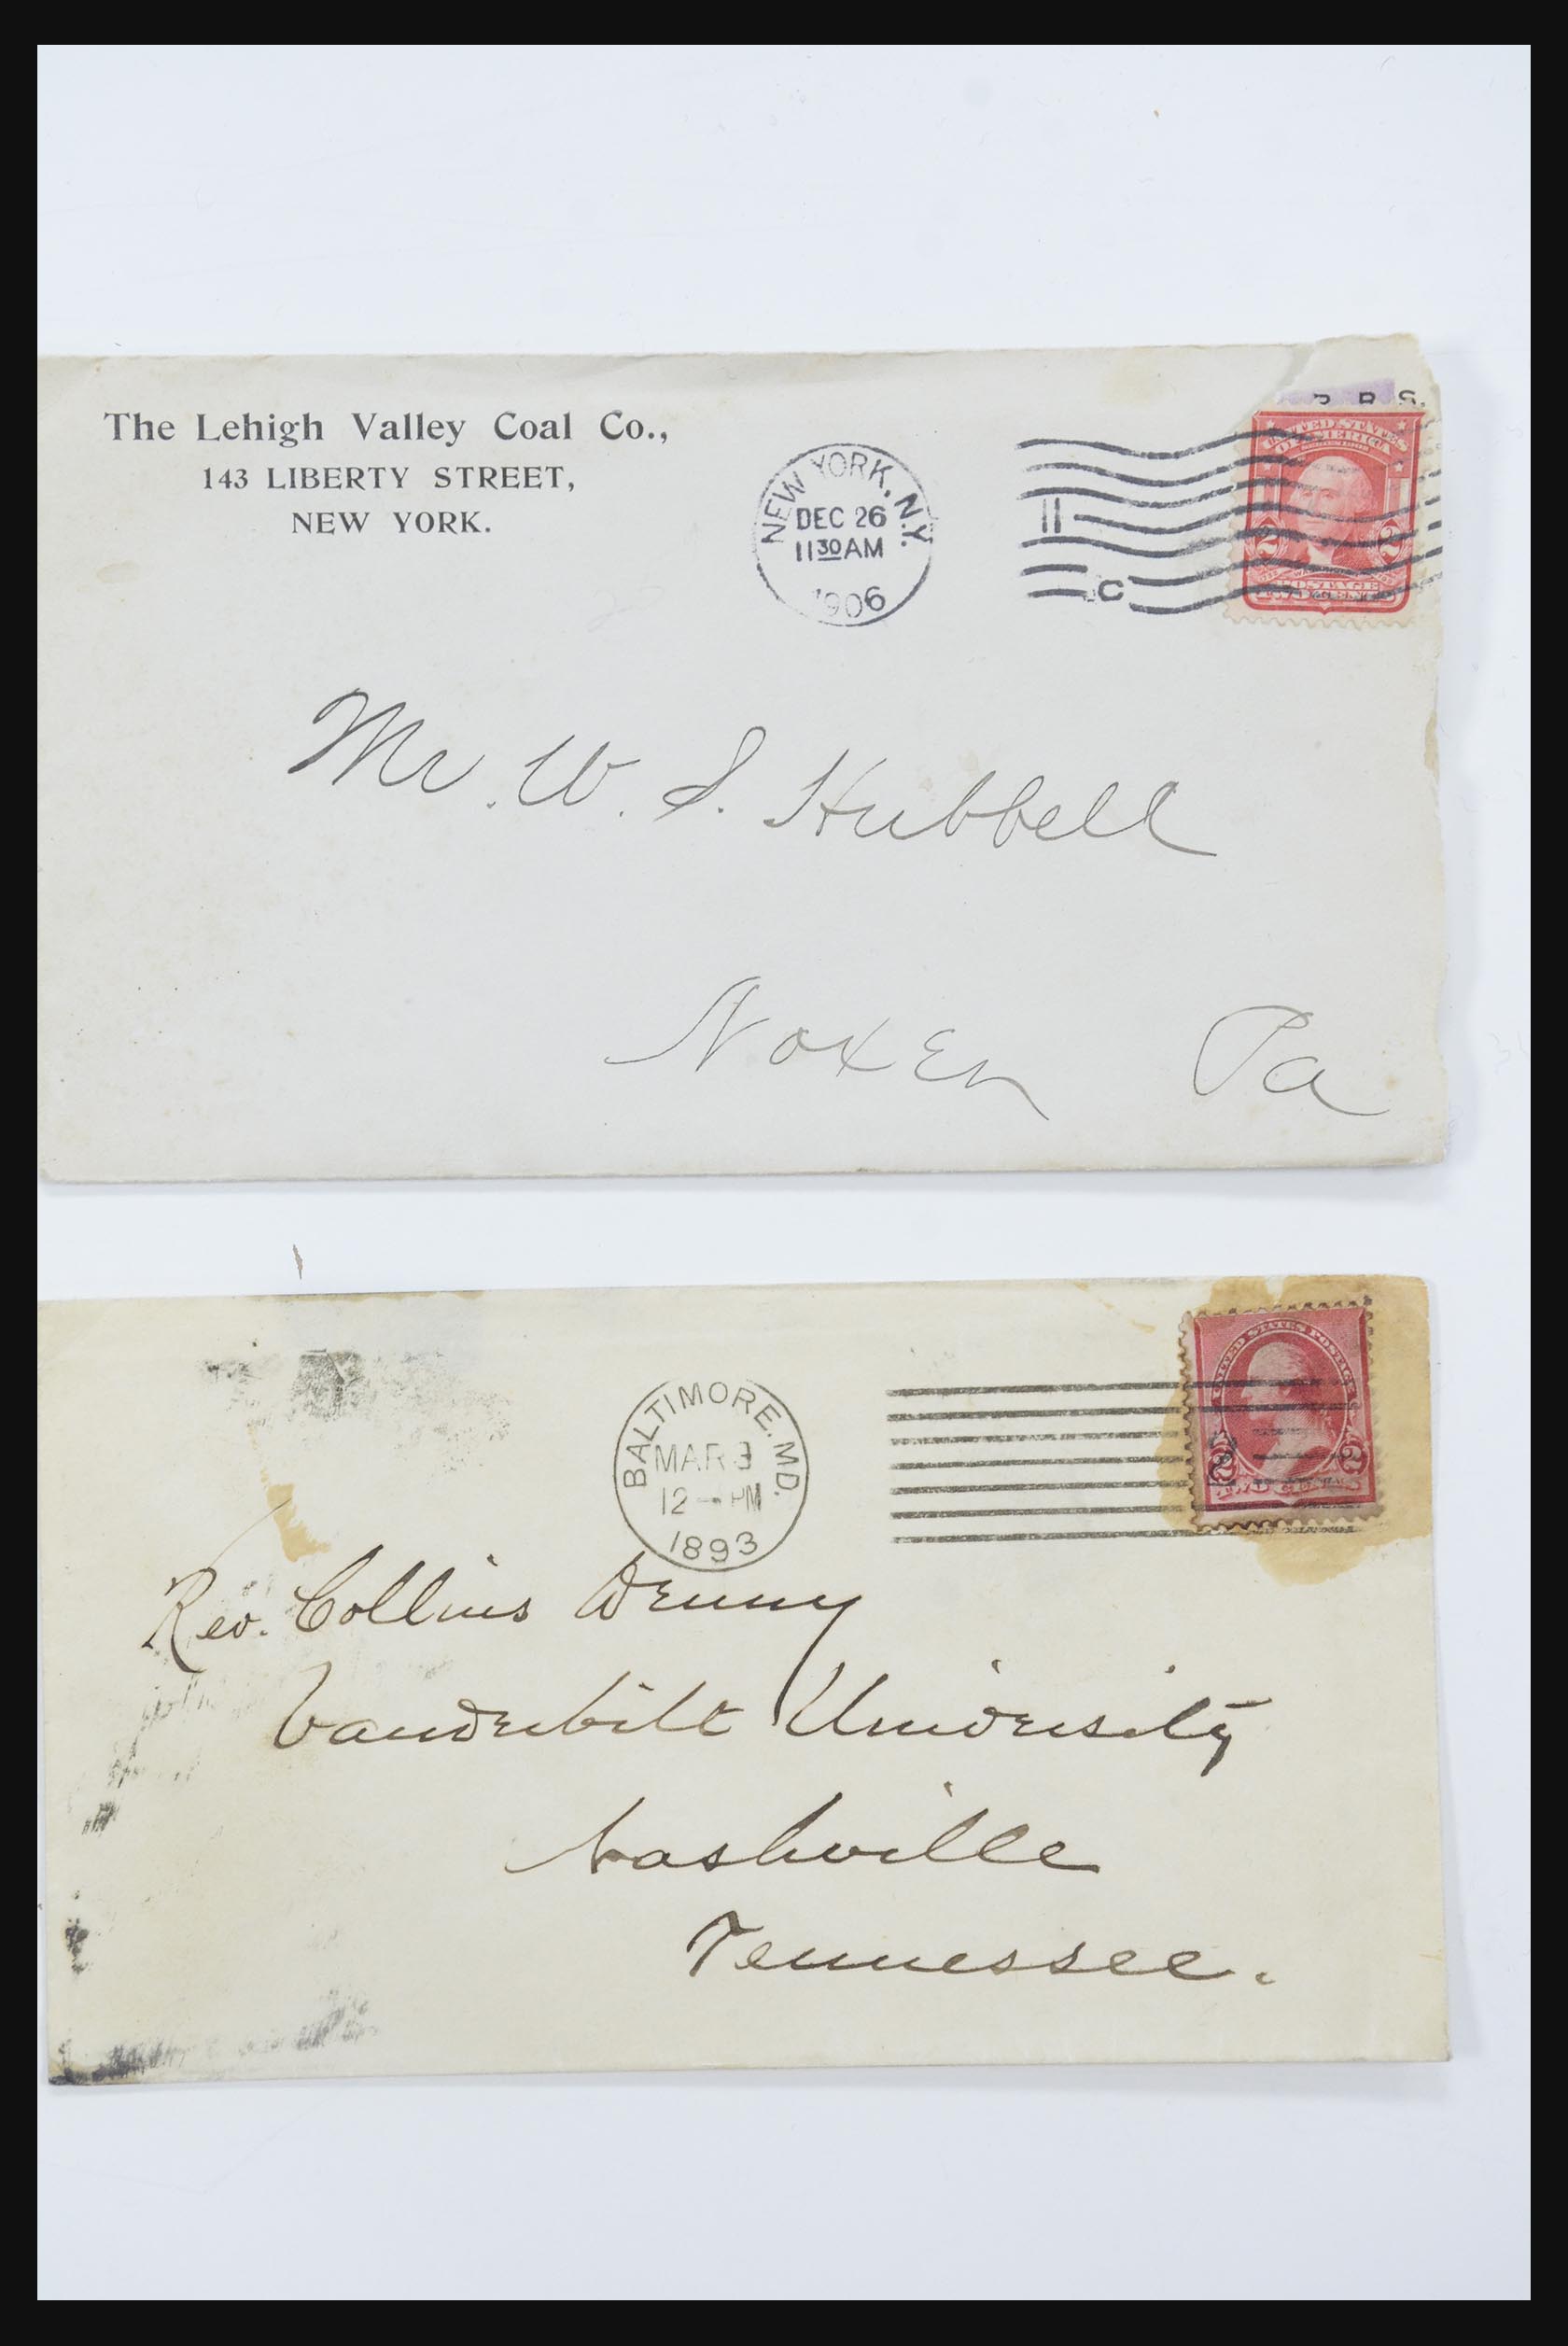 The Lehigh Valley Coal Co.,
143 LIBERTY STREET,
NEW YORK.
NEW YORK, N.Y.
DEC 26
11 30 AM
1906
11
C
UNITED STATES
OF AMERICA
2 2
POSTAGE
TWO CENTS
Mr. W. S. Hubbell
Noxen Pa
BALTIMORE. MD.
MAR 3
12 - PM
1893
UNITED STATES POSTAGE
2 2
TWO CENTS
Rev. Collins Denny
Vanderbilt University
Nashville
Tennessee.